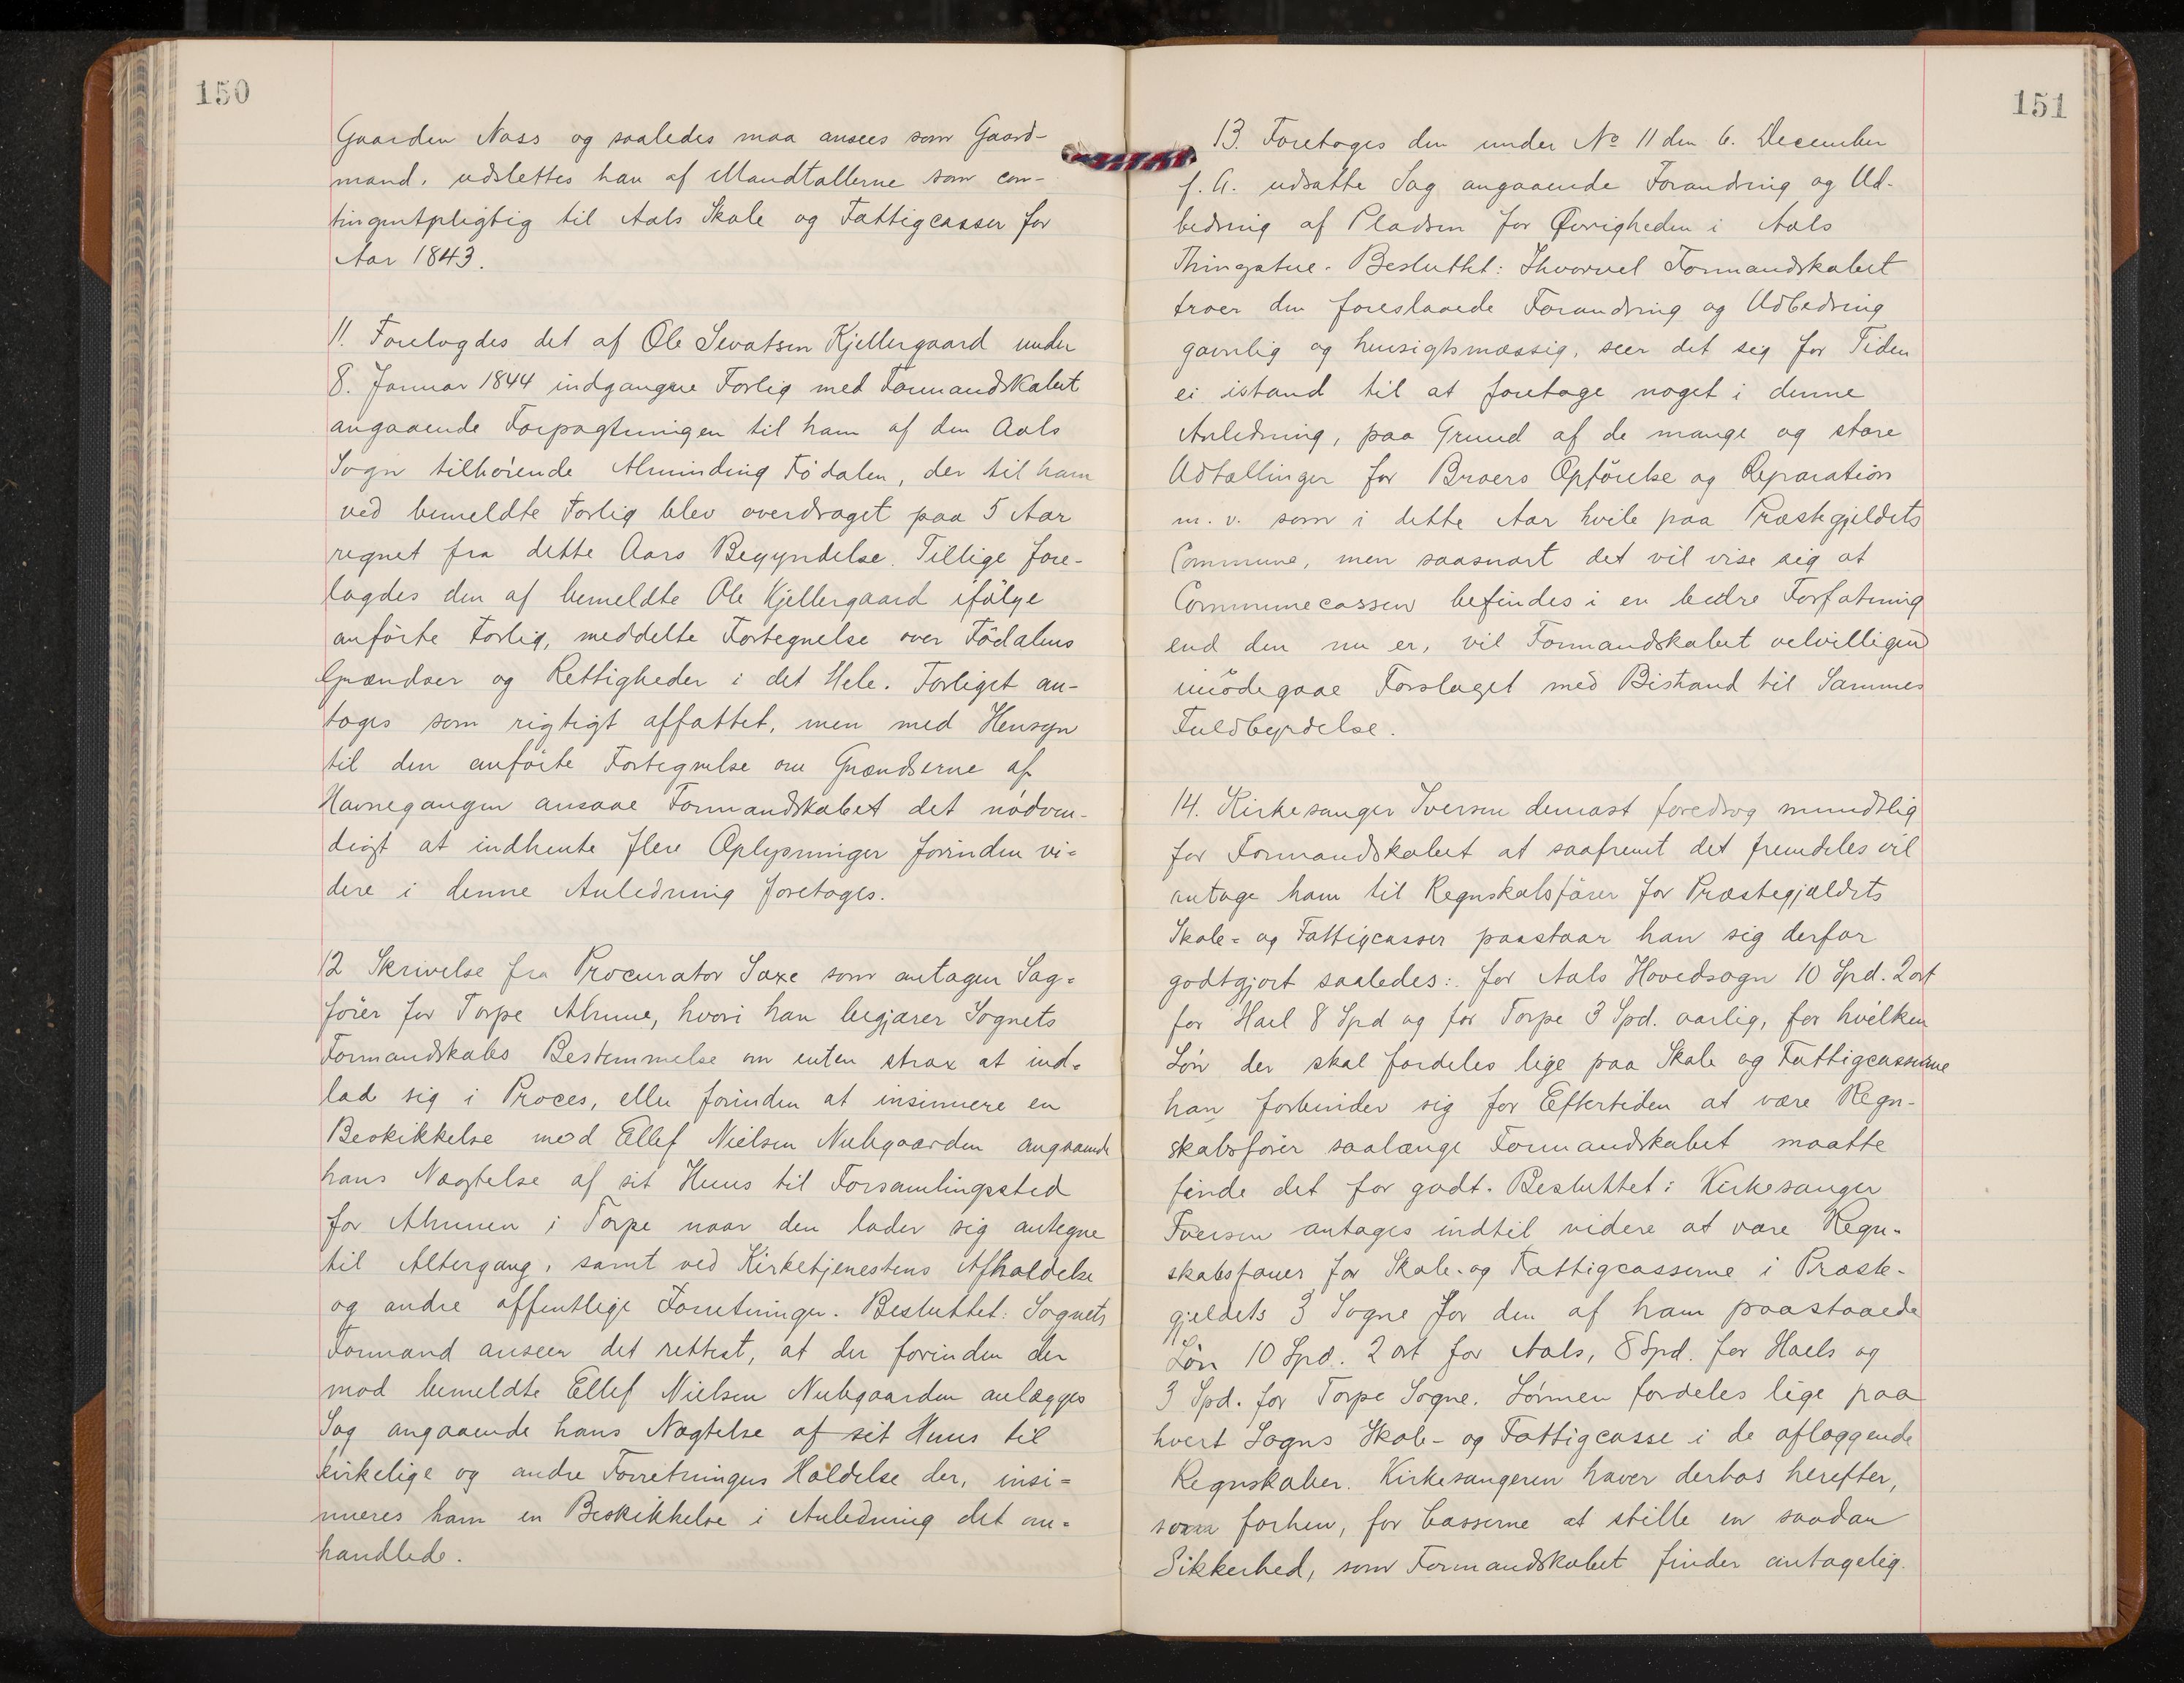 150
Gaarden Næss og saaledes maa ansees som Gaard-
mand, udslettes han af Mandtallerne som con-
tingentpligtig til Aals Skole og Fattigcasser for
Aar 1843.
11. Forelagdes det af Ole Sevatsen Kjellergaard under
8. Januar 1844 indgangne Forlig med Formandskabet
angaaende Forpagtningen til ham af den Aals
Sogn tilhørende Alminding Fødalen, der til ham
ved bemeldte Forlig blev overdraget paa 5 Aar
regnet fra dette Aars Begyndelse. Tillige fore-
lagdes den af bemeldte Ole Kjellergaard ifølge
anførte Forlig, meddelte Fortegnelse over Fødalens
Grændser og Rettigheder i det Hele. Forliget an-
toges som rigtigt affattet, men med Hensyn
til den anførte Fortegnelse om Grændserne af
Havnegangen ansaae Formandskabet det nødven-
digt at indhente flere Oplysninger forinden vi-
dere i denne Anledning foretages.
12 Skrivelse fra Procurator Saxe som antagen Sag-
fører for Torpe Almue, hvori han begjærer Sognets
Formandskabs Bestemmelse om enten strax at ind-
lade sig i Proces, eller forinden at insinuere en
Beskikkelse mod Ellef Nielsen Nubgaarden angaaende
hans Nægtelse af sit Huus til Forsamlingssted
for Almuen i Torpe naar den lader sig antegne
til Altergang, samt ved Kirketjenestens Afholdelse
og andre offentlige Forretninger. Besluttet: Sognets
Formand anseer det rettest, at der forinden der
mod bemeldte Ellef Nielsen Nubgaarden anlægges
Sag angaaende hans Nægtelse af sit Huus til
kirkelige og andre Forretningers Holdelse der, insi-
nueres ham en Beskikkelse i Anledning det om-
handlede.
151
13. Foretages den under No 11 den 6. December
f. A. udsatte Sag angaaende Forandring og Ud-
bedring af Pladsen for Øvrigheden i Aals
Thingstue. Besluttet: Ihvorvel Formandskabet
troer den foreslaaede Forandring og Udbedring
gavnlig og hensigtsmæssig, seer det sig for Tiden
ei istand til at foretage noget i denne
Anledning, paa Grund af de mange og store
Udtællinger for Broers Opførelse og Reparation
m. v. som i dette Aar hvile paa Præstegjeldets
Commune, men saasnart det vil vise sig at
Communecassen befindes i en bedre Forfatning
end den nu er, vil Formandskabet velvilligen
imødegaae Forslaget med Bistand til Sammes
Fuldbyrdelse.
14. Kirkesanger Iversen dernæst foredrog mundtlig
for Formandskabet at saafremt det fremdeles vil
antage ham til Regnskabsfører for Præstegjældets
Skole- og Fattigcasser paastaar han sig derfor
godtgjort saaledes: for Aals Hovedsogn 10 Spd. 2 ort
for Hael 8 Spd og for Torpe 3 Spd. aarlig, for hvilken
Løn der skal fordeles lige paa Skole og Fattigcasserne
han forbinder sig for Eftertiden at være Regn-
skabsfører saalænge Formandskabet maatte
finde det for godt. Besluttet: Kirkesanger
Iversen antages indtil videre at være Regn-
skabsfører for Skole- og Fattigcasserne i Præste-
gjeldets 3 Sogne for den af ham paastaaede
Løn 10 Spd. 2 ort for Aals, 8 Spd. for Haels og
3 Spd. for Torpe Sogne. Lønnen fordeles lige paa
hvert Sogns Skole- og Fattigcasse i de aflæggende
Regnskaber. Kirkesangeren haver derhos herefter,
som forhen, for Casserne at stille en saadan
Sikkerhed, som Formandskabet finder antagelig.